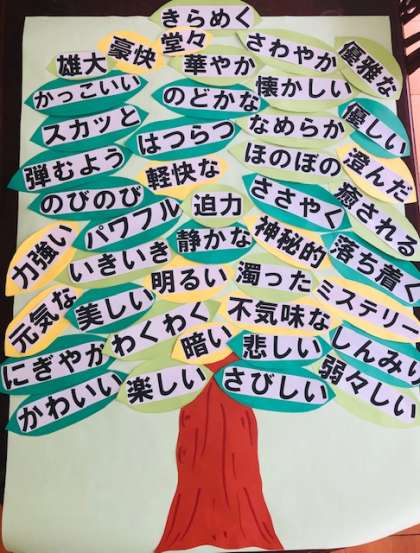 きらめく
堂々
豪快
さわやか
優雅な
雄大
華やか
懐かしい
かっこいい
のどかな
優しい
スカッと
はつらつ
なめらか
弾むよう
軽快な
ほのぼの
澄んだ
のびのび
迫力
ささやく
癒される
パワフル
静かな
神秘的
落ち着く
力強い
いきいき
明るい
濁った
ミステリー
元気な
美しい
わくわく
不気味な
暗い
悲しい
しんみり
にぎやか
かわいい
楽しい
さびしい
弱々しい